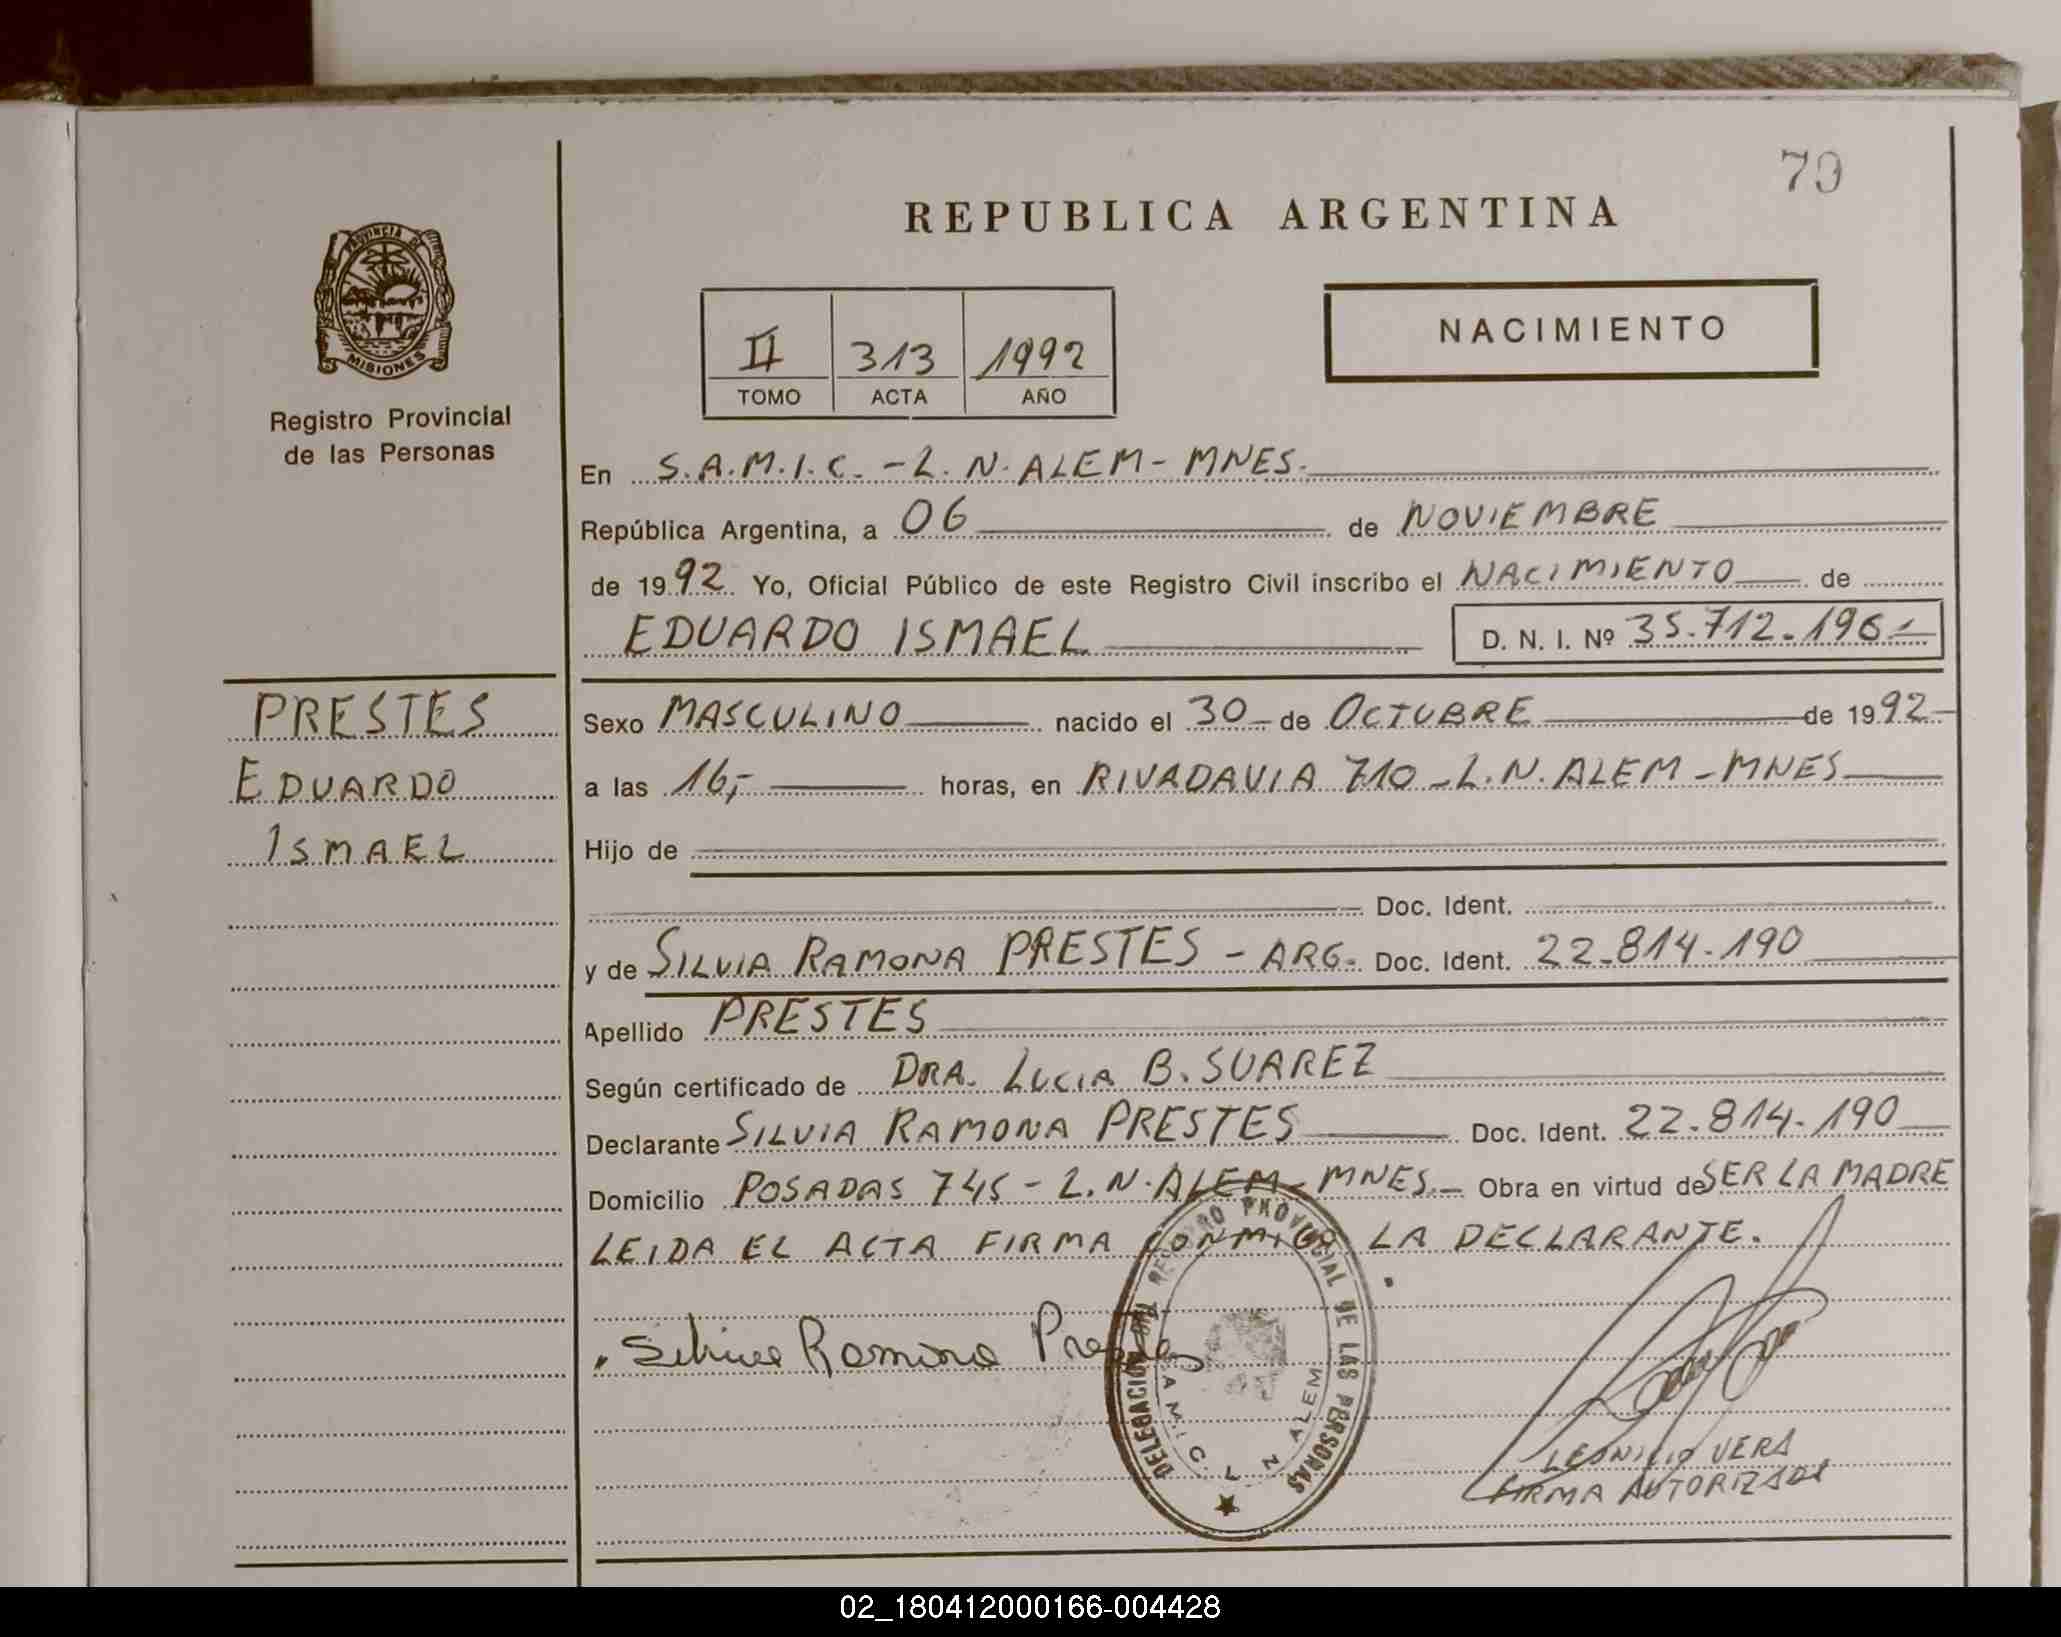 79
REPUBLICA ARGENTINA
PROVINCIA DE
MISIONES
Registro Provincial
de las Personas
II 313 1992
TOMO ACTA AÑO
NACIMIENTO
En S.A.M.I.C. - L. N. ALEM - MNES.
República Argentina, a 06 de NOVIEMBRE
de 1992 Yo, Oficial Público de este Registro Civil inscribo el NACIMIENTO de
EDUARDO ISMAEL D. N. I. Nº 35.712.196.-
PRESTES
EDUARDO
ISMAEL
Sexo MASCULINO nacido el 30 de OCTUBRE de 1992
a las 16,- horas, en RIVADAVIA 710 - L. N. ALEM - MNES
Hijo de
Doc. Ident.
y de SILVIA RAMONA PRESTES - ARG. Doc. Ident. 22.814.190
Apellido PRESTES
Según certificado de DRA. LUCIA B. SUAREZ
Declarante SILVIA RAMONA PRESTES Doc. Ident. 22.814.190
Domicilio POSADAS 745 - L. N. ALEM - MNES.- Obra en virtud de SER LA MADRE
LEIDA EL ACTA FIRMA CONMIGO LA DECLARANTE.
Silvia Ramona Prestes
DELEGACION DEL REGISTRO PROVINCIAL DE LAS PERSONAS
S.A.M.I.C. L N ALEM
LEONICIO VERA
FIRMA AUTORIZADA
02_180412000166-004428